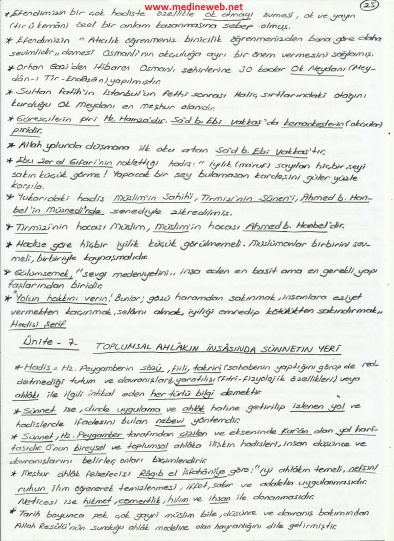 www.medineweb.net
25
* Efendimizin bir çok hadiste özellikle ok atmayı övmesi, ok ve yayın
(Tir û kemân) özel bir anlam kazanmasına sebep olmuş.
* Efendimizin "Atıcılık öğrenmeniz binicilik öğrenmenizden bana göre daha
sevimlidir" demesi Osmanlı'nın okçuluğa ayrı bir önem vermesini sağlamış.
* Orhan Gazi'den itibaren Osmanlı şehirlerine 30 kadar Ok Meydanı (Mey-
dân-ı Tir-Endâzân) yapılmıştır.
* Sultan Fatih'in İstanbul'un Fethi sonrası Haliç sırtlarındaki otağını
kurduğu Ok Meydanı en meşhur olanıdır.
* Güreşçilerin piri Hz. Hamza'dır. Sa'd b. Ebi Vakkas'da kemankeşlerin (okçuların)
piridir.
* Allah yolunda düşmana ilk oku atan Sa'd b. Ebi Vakkas'tır.
* Ebu Zer el Gıfari'nin naklettiği hadis: "iyilik (maruf) sayılan hiçbir şeyi
sakın küçük görme! Yapacak bir şey bulamasan kardeşini güler yüzle
karşıla.
* Yukarıdaki hadis Müslim'in Sahihi, Tirmizi'nin Süneni, Ahmed b. Han-
bel'in Müsnedi'nde senediyle zikredilmiş.
* Tirmizi'nin hocası Müslim, Müslim'in hocası Ahmed b. Hanbel'dir.
* Hadise göre hiçbir iyilik küçük görülmemeli. Müslümanlar birbirini sev-
meli, birbiriyle kaynaşmalıdır.
* Gülümsemek, "sevgi medeniyetini" inşa eden en basit ama en gerekli yapı
taşlarından biridir.
* "Yolun hakkını verin! Bunlar; gözü haramdan sakınmak, insanlara eziyet
vermekten kaçınmak, selamı almak, iyiliği emredip kötülükten sakındırmak"
Hadisi Şerif
Ünite - 7 TOPLUMSAL AHLÂKIN İNŞASINDA SÜNNETİN YERİ
* Hadis = Hz. Peygamberin sözü, fiili, takriri (sahabenin yaptığını görüp de red-
detmediği tutum ve davranışları), yaratılışı (Fıtri-Fizyolojik özellikleri) veya
ahlâkı ile ilgili intikal eden her türlü bilgi demektir
* Sünnet ise, dinde uygulama ve ahlâk haline getirilip izlenen yol ve
hadislerde ifadesini bulan nebevi yöntemdir.
* Sünnet, Hz. Peygamber tarafından çizilen ve ekseninde Kur'ân olan yol hari-
tasıdır. O'nun bireysel ve toplumsal ahlâka ilişkin hadisleri, insan düşünce ve
davranışlarını belirleyici olarak biçimlendirir.
* Meşhur ahlâk felsefecisi Râgıb el İsfehâniye göre; "iyi ahlâkın temeli, nefsini
ruhun ilim öğrenerek temizlenmesi, iffet, sabır ve adaletin uygulanmasıdır.
Neticesi ise hikmet, cömertlik, hilim ve ihsan ile donanmasıdır.
* Tarih boyunca pek çok gayri müslim bile, düşünce ve davranış bakımından
Allah Resûlü'nün sunduğu ahlâk modeline olan hayranlığını dile getirmiştir.